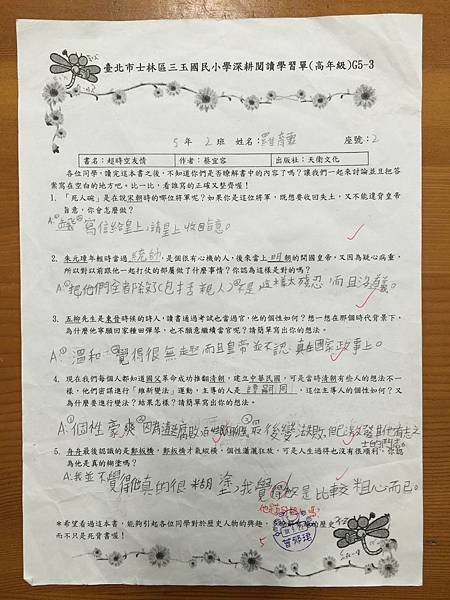 臺北市士林區三玉國民小學深耕閱讀學習單(高年級)G5-3
5 年 2 班 姓名: 座號:2
書名:超時空友情 作者:蔡宜容 出版社:天衛文化
各位同學,讀完這本書之後,不知道你們是否瞭解書中的內容了嗎?讓我們一起來討論並且把答
案寫在空白的地方吧。比一比,看誰寫的正確又整齊喔!
1. 「死人碗」是在說宋朝時的哪位將軍呢?如果你是這位將軍,既想要收回失土,又不能違背皇帝
旨意,你會怎麼做?
寫信給皇上,請皇上收回旨意。
2. 朱元璋年輕時當過統帥,是個很有心機的人,後來當上明朝的開國皇帝,又因為疑心病重,
所以對以前跟他一起打仗的部屬做了什麼事情?你認為這樣是對的嗎?
A:把他們全看 (包括親人)不是,這樣太殘忍,而且沒
3. 五柳先生是東晉時候的詩人,讀書通過考試也當過官,他的個性如何?想一想在那個時代背景下,
為什麼他寧願回家種田彈琴,也不願意繼續當官呢?請簡單寫出你的想法。
A:溫和 覺得很無趣,而且皇帝並不認真在國家政事上。
4. 現在我們每個人都知道國父革命成功推翻清朝,建立中華民國,可是當時清朝有些人的想法不一
樣,他們密謀進行「維新變法」運動,主導的人是譚嗣同,這位主導人的個性如何?又
為什麼要進行變法?結果怎樣?請簡單寫出你的想法。
A:個性豪爽 因為 腐敗 最後變法失敗,但激發其他有志之
士的鬥志。
5. 舟舟最後認識的是鄭板橋,鄭板橋才氣縱橫,個性瀟灑狂放,可是人生過得也沒有很順利,你認
為他是真的糊塗嗎?
A:我並不覺得他真的很糊塗,我覺得他是比較粗心而已。
*希望看過這本書,能夠引起各位同學對於歷史人物的興趣, 的歷史
而不只是死背書喔!